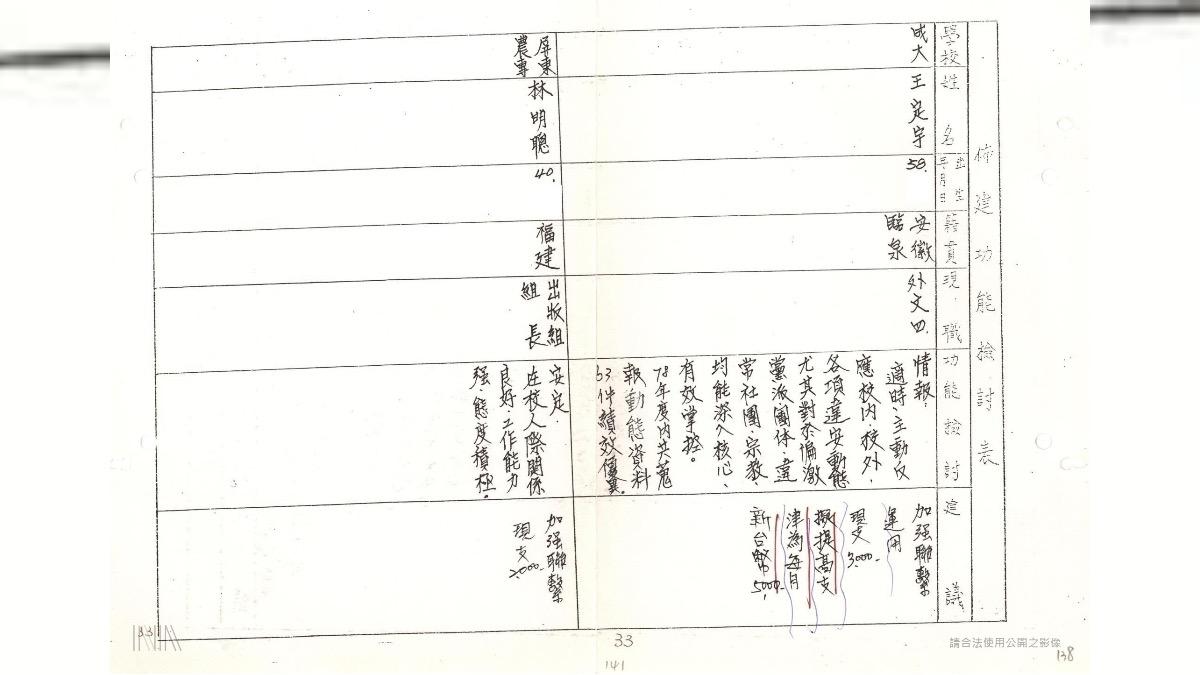 佈建功能檢討表
學校
姓名
出生
年月日
籍貫
現職
功能檢討
建議
成大
王定宇
58.
安徽
臨泉
外文四
情報:
適時、主動反
應校內、校外、
各項違安動態
尤其對於偏激
黨派、團体、違
常社團、宗教、
均能深入核心、
有效掌控。
78年度內共蒐
報動態資料
63件績效優異。
加强聯繫
運用
現支
3000.-
擬提高支
津為每月
新台幣5000.-
屏東
農專
林明聰
40.
福建
出版組
組長
安定.
在校人際關係
良好.工作能力
强.態度積極.
加强聯繫
現支2000.-
33
33
141
138
請合法使用公開之影像